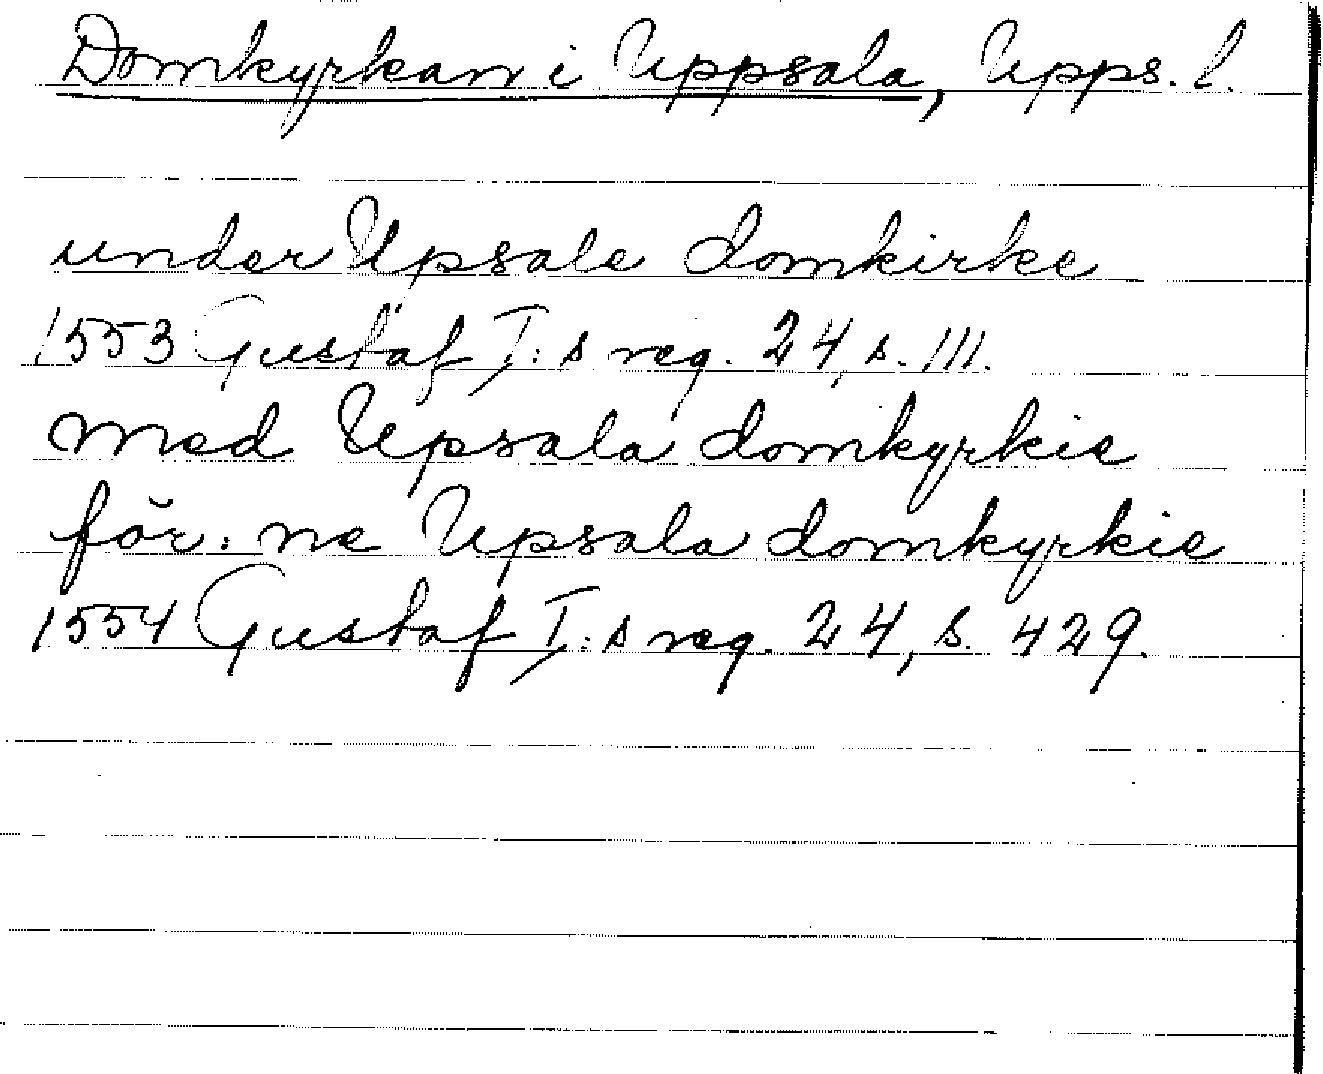 Domkyrkan i Uppsala, Upps. l.
under Upsale domkirke
1553 Gustaf I:s reg. 24, s. 111.
med Upsala domkyrkie
för:ne Upsala domkyrkie
1554 Gustaf I:s reg. 24, s. 429.